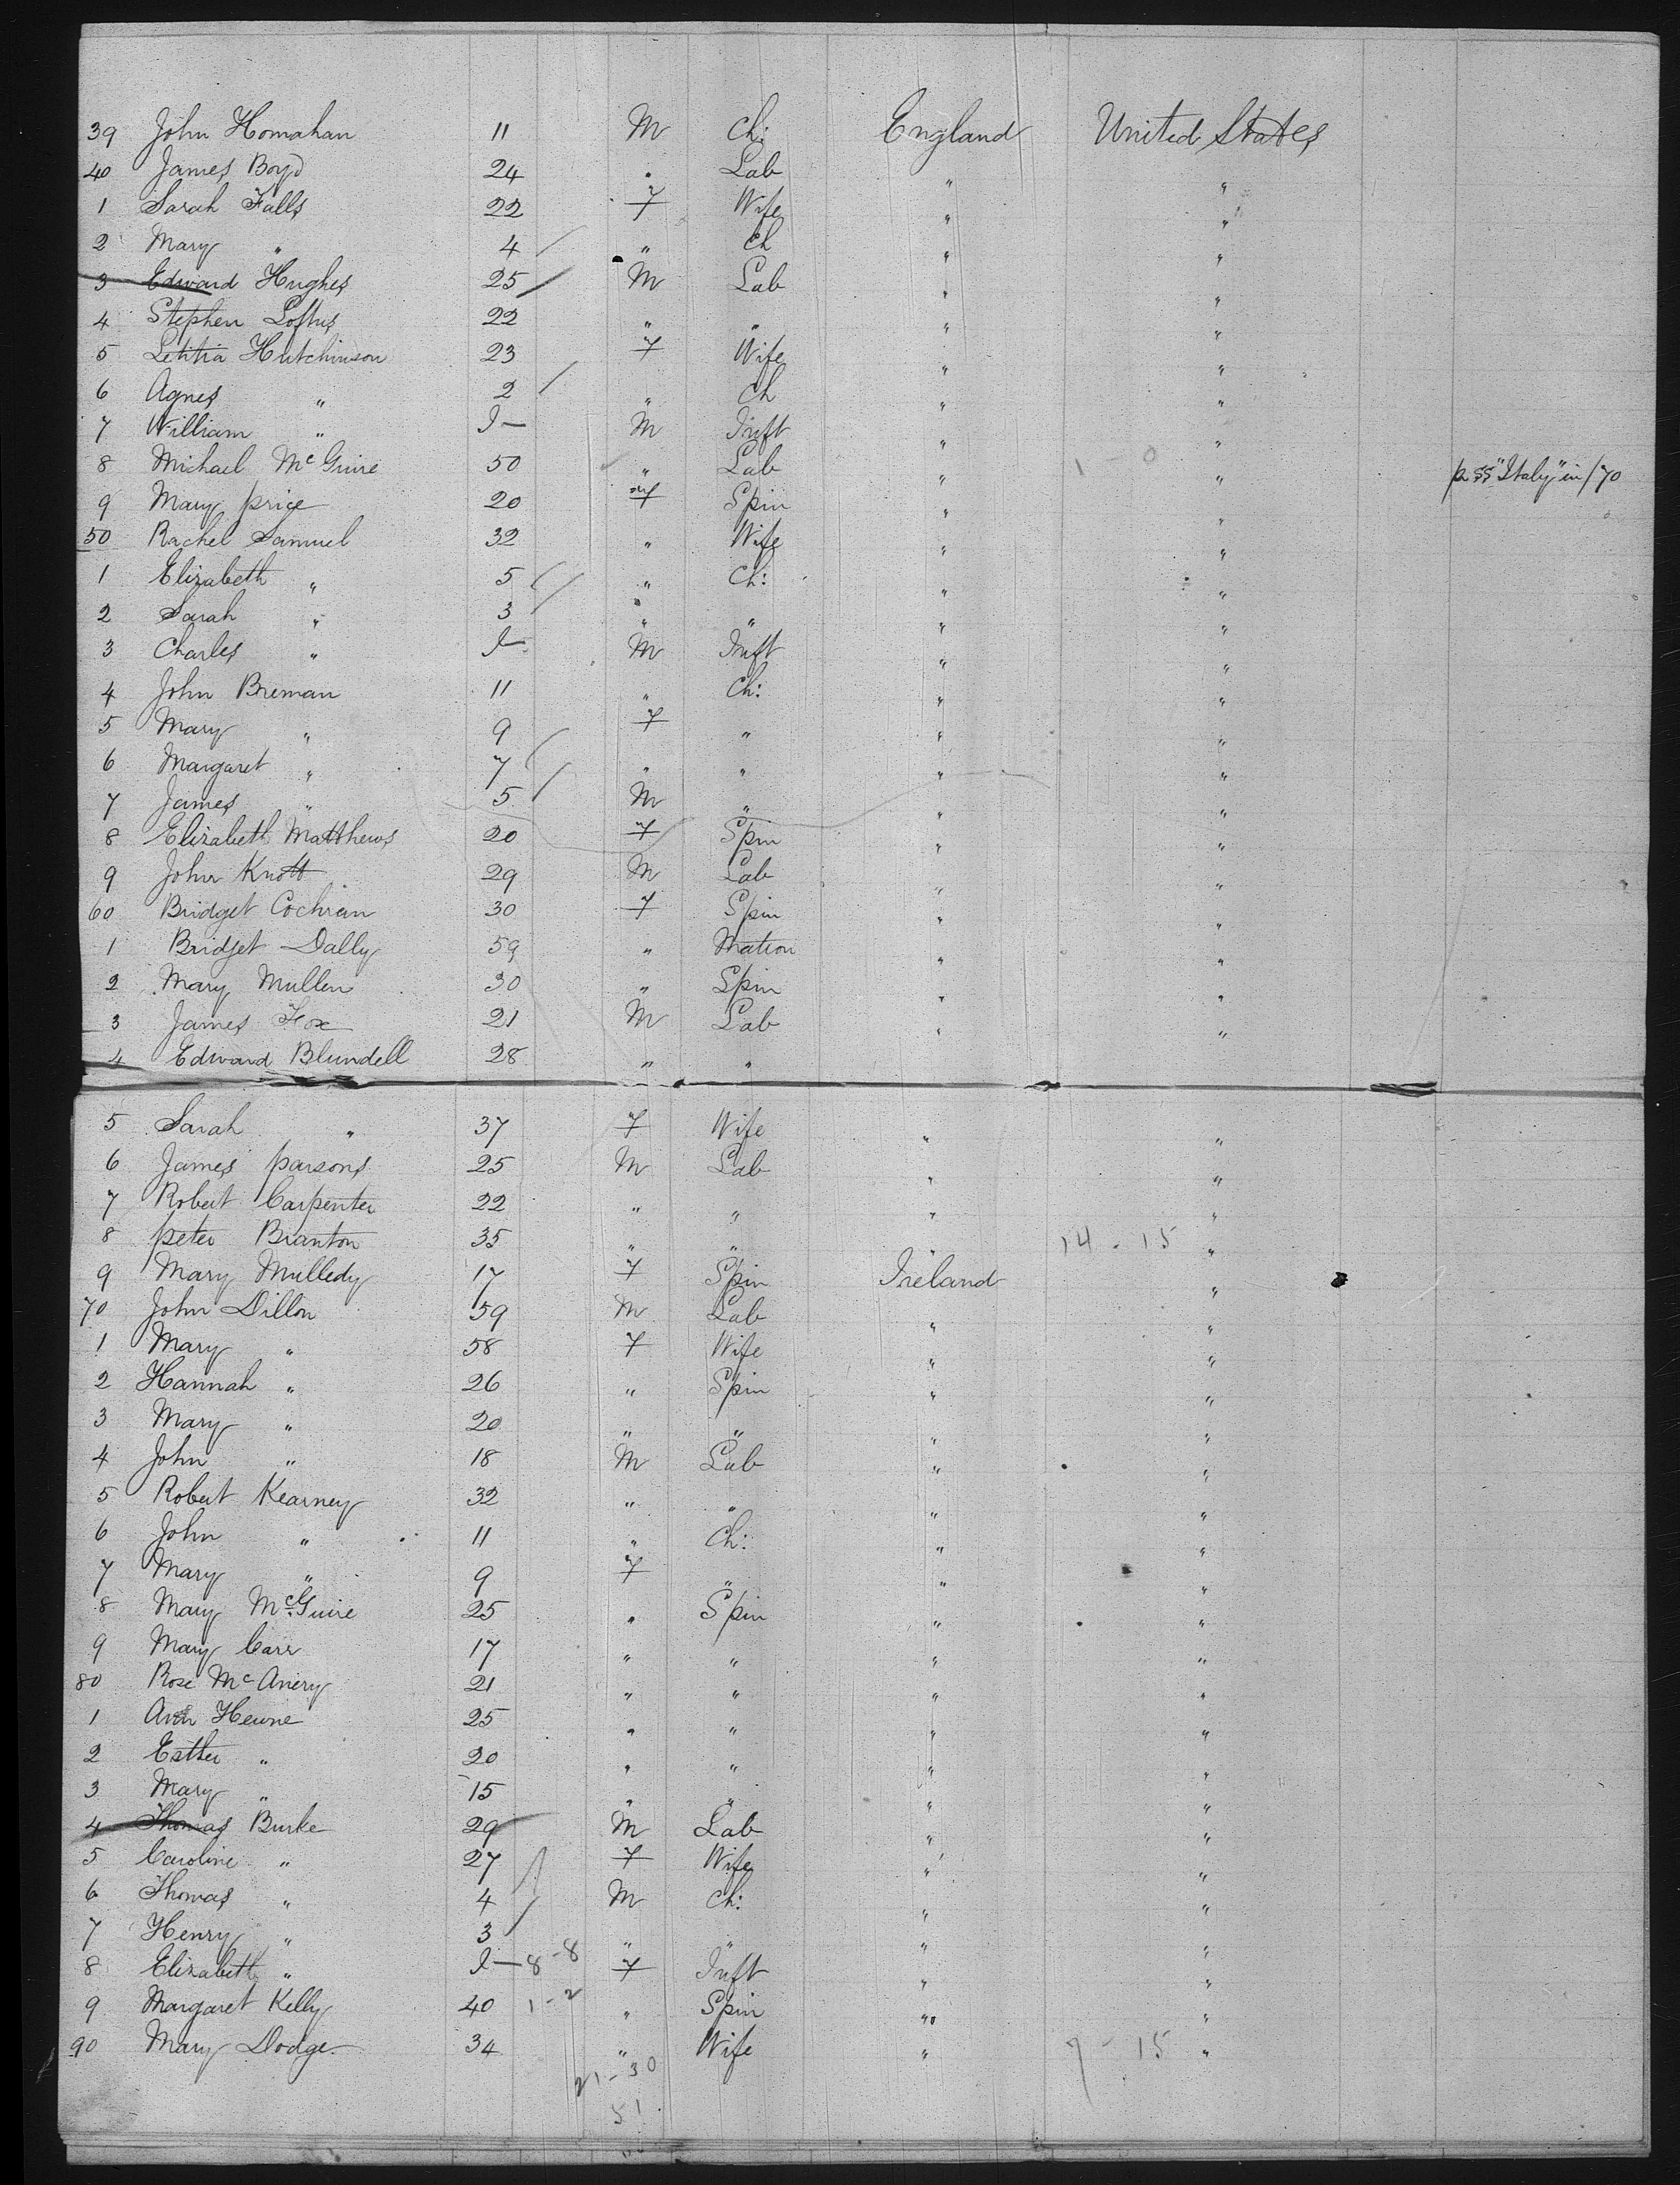 39 John Homahan 11 M Ch: England United States
40 James Boyd 24 " Lab " "
1 Sarah Falls 22 F Wife " "
2 Mary " 4 " Ch " "
3 Edward Hughes 25 M Lab " "
4 Stephen Loftus 22 " " " "
5 Letitia Hutchinson 23 F Wife " "
6 Agnes " 2 " Ch " "
7 William " I— M Inft " "
8 Michael McGuire 50 " Lab " 1-0 " p SS "Italy" in /70
9 Mary price 20 F Spin " "
50 Rachel Samuel 32 " Wife " "
1 Elizabeth " 5 " Ch: " "
2 Sarah " 3 " " " "
3 Charles " I— M Inft " "
4 John Breman 11 " Ch: " "
5 Mary " 9 F " " "
6 Margaret " 7 " " " "
7 James " 5 M " " "
8 Elizabeth Matthews 20 F Spin " "
9 John Knott 29 M Lab " "
60 Bridget Cochran 30 F Spin " "
1 Bridget Dally 59 " Matron " "
2 Mary Mullen 30 " Spin " "
3 James Fox 21 M Lab " "
4 Edward Blundell 28 " "
5 Sarah " 37 F Wife " "
6 James parsons 25 M Lab " "
7 Robert Carpenter 22 " " " "
8 peter Branton 35 " " " 14-15 "
9 Mary Mulledy 17 F Spin Ireland "
70 John Dillon 59 M Lab " "
1 Mary " 58 F Wife " "
2 Hannah " 26 " Spin " "
3 Mary " 20 " " " "
4 John " 18 M Lab " "
5 Robert Kearney 32 " " " "
6 John " 11 " Ch: " "
7 Mary " 9 F " " "
8 Mary McGuire 25 " Spin " "
9 Mary Carr 17 " " " "
80 Rose McAnery 21 " " " "
1 Ann Hewne 25 " " " "
2 Esther " 20 " " " "
3 Mary " 15 " " " "
4 Thomas Burke 29 M Lab " "
5 Caroline " 27 F Wife " "
6 Thomas " 4 M Ch: " "
7 Henry " 3 " " " "
8 Elizabeth " I— 8-8 F Inft " "
9 Margaret Kelly 40 1-2 " Spin " "
90 Mary Dodge 34 " Wife " 7-15 "
21-30
51